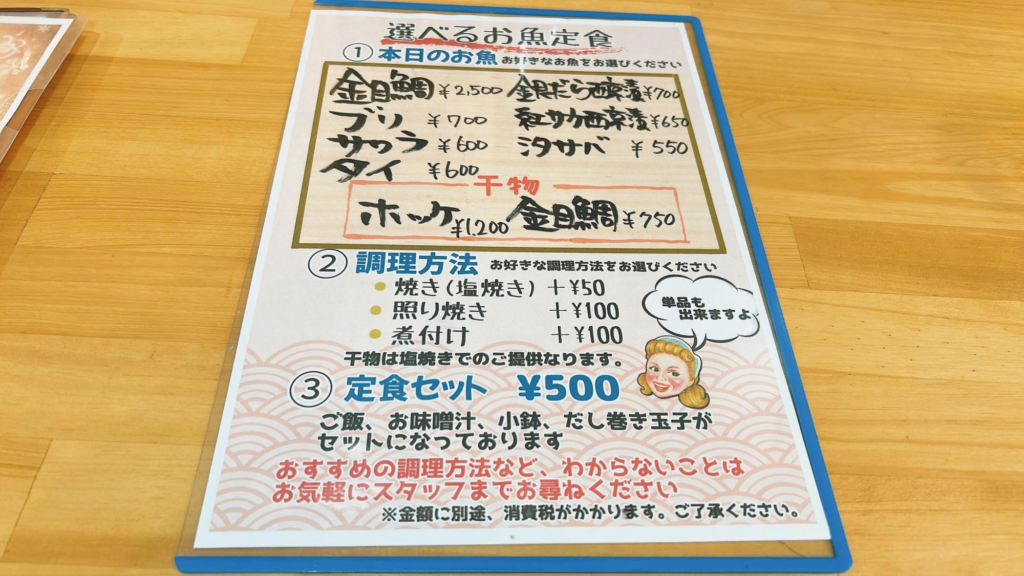 選べるお魚定食
① 本日のお魚 お好きなお魚をお選びください
金目鯛 ¥2,500 金銀だら西京漬 ¥700
ブリ ¥700 紅サケ西京漬 ¥650
サワラ ¥600 汐サバ ¥550
タイ ¥600
干物
ホッケ ¥1,200 金目鯛 ¥750
② 調理方法 お好きな調理方法をお選びください
焼き(塩焼き) +¥50
照り焼き +¥100
煮付け +¥100
単品も
出来ますよ
干物は塩焼きでのご提供なります。
③ 定食セット ¥500
ご飯、お味噌汁、小鉢、だし巻き玉子が
セットになっております
おすすめの調理方法など、わからないことは
お気軽にスタッフまでお尋ねください
※金額に別途、消費税がかかります。ご了承ください。